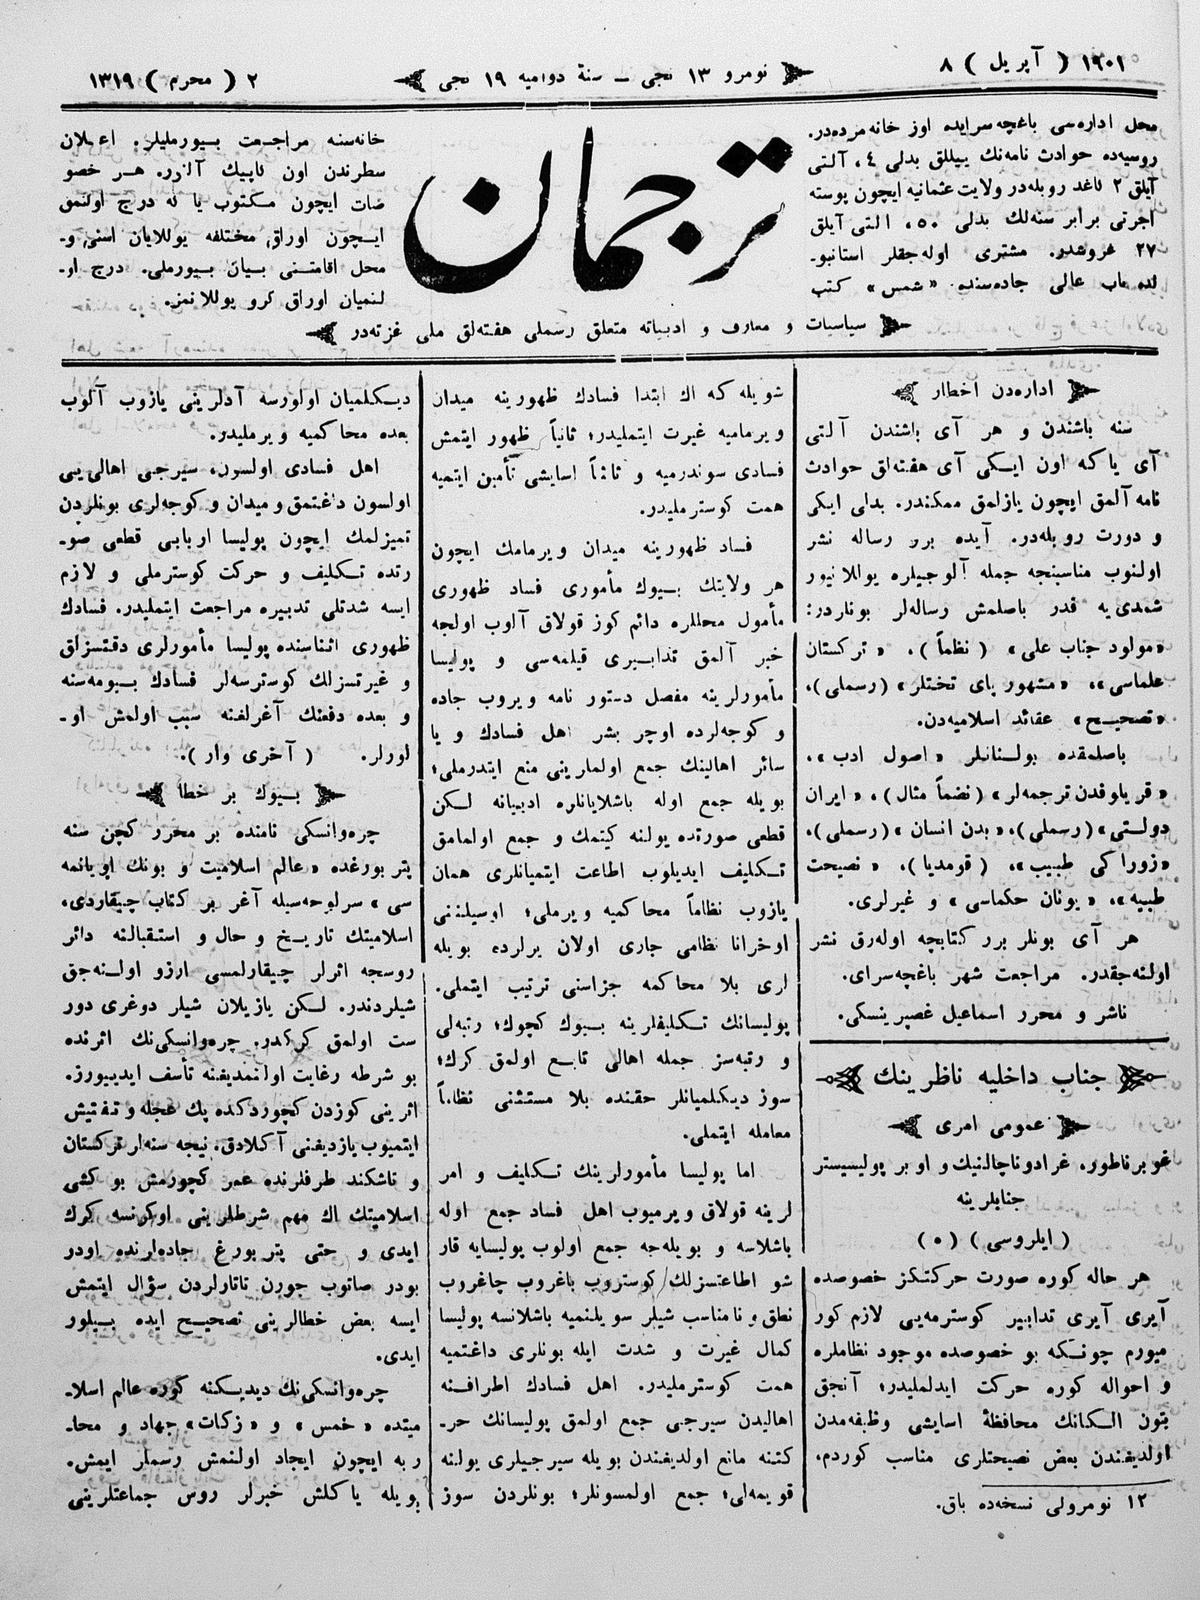 ١٩٠١ ( آپریل ) ٨
نومرو ١٣ نجی ــ سنهٔ دوامیه ١٩ نجی
٢ ( محرم ) ١٣١٩
محل اداره‌سی باغچه‌سرایده اوز خانه‌مزده‌در.
روسیه‌ده حوادث نامه‌نك ییللق بدلی ٤، آلتی
آیلق ٢ كاغد روبله‌در ولایت عثمانیه ایچون پوسته
اجرتی برابر سنه‌لك بدلی ٥٠، التی آیلق
٢٧ غروشدر. مشتری اوله‌جقلر استانبو-
لده باب عالی جاده‌سنده «شمس» كتب
ترجمان
خانه‌سنه مراجعت بیورملیلر. اعلان
سطرندن اون كاپیك آلنور. هر خصو
صات ایچون مكتوب یا كه درج اولنمق
ایچون اوراق مختلفه یوللایان اسنی و-
محل اقامتنی بیان بیورملی. درج او-
لنمیان اوراق كرو یوللانمز.
سیاسیات و معارف و ادبیاته متعلق رسملی هفته‌لق ملی غزته‌در
اداره‌دن اخطار
سنه باشندن و هر آی باشندن آلتی
آی یا كه اون ایكی آی هفته‌لق حوادث
نامه آلمق ایچون یازلمق ممكندر. بدلی ایكی
و دورت روبله‌در. آیده برر رساله نشر
اولنوب مناسبنجه جمله آلوجیلره یوللانیور
شمدی‌یه قدر باصلمش رساله‌لر بونلردر:
«مولود جناب علی» (نظماً)، «تركستان
علماسی»، «مشهور بای تختلر» (رسملی)،
«تصحیح» عقائد اسلامیه‌دن.
باصلمقده بولنانلر «اصول ادب»،
«قریلوفدن ترجمه‌لر» (نضماً مثال)، «ایران
دولتی» (رسملی)، «بدن انسان» (رسملی)،
«زوراكی طبیب»، (قومدیا)، «نصیحت
طبیه»، «یونان حكماسی» و غیرلری.
هر آی بونلر برر كتابچه اوله‌رق نشر
اولنه‌جقدر. مراجعت شهر باغچه‌سرای.
ناشر و محرر اسماعیل غصپرینسكی.
جناب داخلیه ناظرینك
عمومی امری
غوبرناطور، غرادوناچالنیك و اوبر پولیسیستر
جنابلرینه
( ایلروسی ) (٥)
هر حاله كوره صورت حركتكز خصوصده
آیری آیری تدابیر كوسترمه‌یی لازم كور
میورم چونكه بو خصوصده موجود نظاملره
و احواله كوره حركت ایدلملیدر؛ آنجق
بتون الكانك محافظهٔ اسایشی وظیفه‌مدن
اولدیغندن بعض نصیحتلری مناسب كوردم.
١٢ نومرولی نسخه‌ده باق.
شویله كه اك ابتدا فسادك ظهورینه میدان
ویرمامیه غیرت ایتملیدر؛ ثانیاً ظهور ایتمش
فسادی سوندرمیه و ثالثاً اسایشی تأمین ایتمیه
همت كوسترملیدر.
فساد ظهورینه میدان ویرمامك ایچون
هر ولایتك بیوك مأموری فساد ظهوری
مأمول محللره دائم كوز قولاق آلوب اولجه
خبر آلمق تدابیری قیلمه‌سی و پولیسا
مأمورلرینه مفصل دستور نامه ویروب جاده
و كوچه‌لرده اوچر بشر اهل فسادك و یا
سائر اهالینك جمع اولمارینی منع ایتدرملی؛
بویله جمع اوله باشلایانلره ادبیانه لكن
قطعی صورتده یولنه كیتمك و جمع اولمامق
تكلیف ایدیلوب اطاعت ایتمیانلری همان
یازوب نظاماً محاكمیه ویرملی؛ اوسیلننی
اوخرانا نظامی جاری اولان یرلرده بویله
لری بلا محاكمه جزاسنی ترتیب ایتملی.
پولیسانك تكلیفلرینه بیوك كچوك؛ رتبه‌لی
و رتبه‌سز جمله اهالی تابع اولمق كرك؛
سوز دیكلمیانلر حقنده بلا مستثنی نظاماً
معامله ایتملی.
اما پولیسا مأمورلرینك تكلیف و امر
لرینه قولاق ویرمیوب اهل فساد جمع اوله
باشلاسه و بویله‌جه جمع اولوب پولیسایه قار
شو اطاعتسزلك كوستروب باغروب چاغروب
نطق و نامناسب شیلر سویلنمیه باشلانسه پولیسا
كمال غیرت و شدت ایله بونلری داغتمیه
همت كوسترملیدر. اهل فسادك اطرافنه
اهالیدن سیرجی جمع اولمق پولیسانك حر-
كتنه مانع اولدیغندن بویله سیرجیلری یولنه
قویمه‌لی؛ جمع اولمسونلر؛ بونلردن سوز
دیكلمیان اولورسه آدلرینی یازوب آلوب
بعده محاكمیه ویرملیدر.
اهل فسادی اولسون، سیرجی اهالی‌یی
اولسون داغتمق و میدان و كوچه‌لری بونلردن
تمیزلمك ایچون پولیسا اربابی قطعی صو-
رتده تكلیف و حركت كوسترملی و لازم
ایسه شدتلی تدبیره مراجعت ایتملیدر. فسادك
ظهوری اثناسنده پولیسا مأمورلری دقتسزلق
و غیرتسزلك كوسترسه‌لر فسادك بیومه‌سنه
و بعده دفعنك آغرلغنه سبب اولمش او-
لورلر. ( آخری وار ).
بیوك بر خطا
چره‌وانسكی نامنده بر محرر كچن سنه
پتربورغده «عالم اسلامیت و بونك اویانمه
سی» سرلوحه‌سیله آغر بر كتاب چیقاردی.
اسلامیتك تاریخ و حال و استقبالنه دائر
روسجه اثرلر چیقارلمسی ارزو اولنه‌جق
شیلردندر. لكن یازیلان شیلر دوغری دور
ست اولمق كركدر. چره‌وانسكی‌نك اثرنده
بو شرطه رغایت اولنمدیغنه تأسف ایدییورز.
اثرینی كوزدن كچوردكده پك عجله و تفتیش
ایتمیوب یازدیغنی آكلادق. نیجه سنه‌لر تركستان
و تاشكند طرفلرنده عمر كچورمش بو كشی
اسلامیتك اك مهم شرطلرینی اوكرنسه كرك
ایدی و حتی پتربورغ جاده‌لرنده اودر
بودر صاتوب جورن تاتارلردن سؤال ایتمش
ایسه بعض خطالرینی تصحیح ایده بیلور
ایدی.
چره‌وانسكی‌نك دیدیكنه كوره عالم اسلا-
میتده «خمس» و «زكات» جهاد و محا-
ربه ایچون ایجاد اولنمش رسملر ایمش.
بویله یاكلش خبرلر روس جماعتلرینی